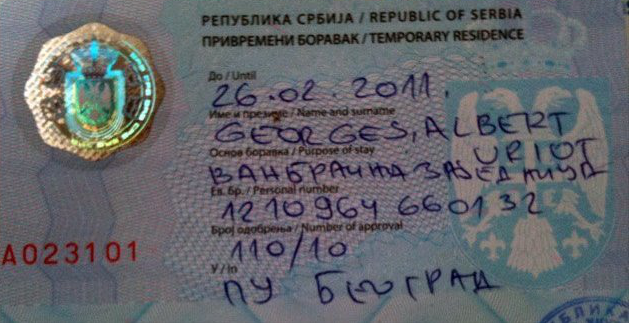 РЕПУБЛИКА СРБИЈА / REPUBLIC OF SERBIA
ПРИВРЕМЕНИ БОРАВАК / TEMPORARY RESIDENCE
До / Until
26.02.2011.
Име и презиме / Name and surname
GEORGES, ALBERT
URIOT
Основ боравка / Purpose of stay
ВАНБРАЧНА ЗАЈЕДНИЦА
Ев. бр. / Personal number
1210964 660132
Број одобрења / Number of approval
110/10
A023101
У / In
ПУ БЕОГРАД